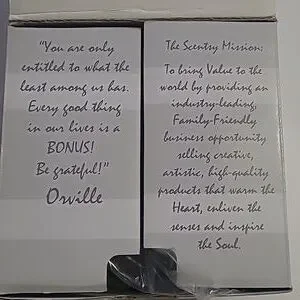 “You are only
entitled to what the
least among us has.
Every good thing
in our lives is a
BONUS!
Be grateful!”
Orville
The Scentsy Mission:
To bring Value to the
world by providing an
industry-leading,
Family-Friendly
business opportunity
selling creative,
artistic, high-quality
products that warm the
Heart, enliven the
senses and inspire
the Soul.